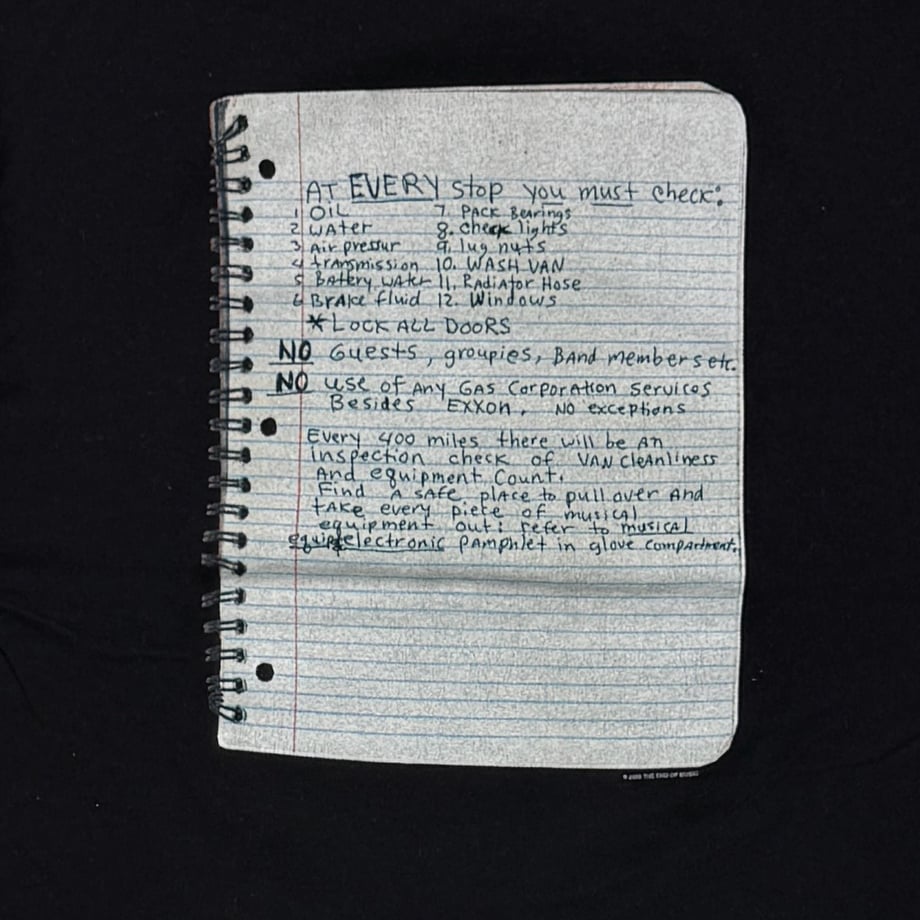 AT EVERY stop you must check:
1 OIL 7. PACK Bearings
2 WAter 8. check lights
3 Air pressur 9. lug nuts
4 transmission 10. WASH VAN
5 BAttery WAter 11. RADiAtor Hose
6 BrAke fluid 12. Windows
*LOCK ALL DOORS
NO Guests, groupies, BAnd members etc.
NO use of Any GAS Corporation services
Besides EXXon. NO exceptions
Every 400 miles there will be An
inspection check of VAN cleAnliness
And equipment Count.
Find A SAfe plAce to pull over And
tAKe every piece of musicAl
equipment out: refer to musicAl
electronic pAmphlet in glove compArtment.
THE END OF MUSIC